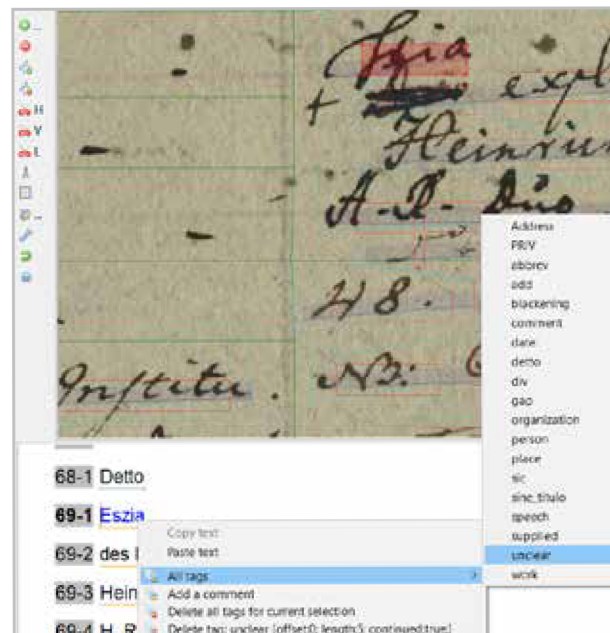 H
V
L
expl
Heinriu
A-R- Duo
48.
Institu. NB:
Address
PRIV
abbrev
add
blackening
comment
date
detto
div
gap
organization
person
place
sic
sine_titulo
speech
supplied
unclear
work
68-1 Detto
69-1 Eszia
69-2 des
69-3 Hein
69-4 H. R
Copy text
Paste text
All tags
Add a comment
Delete all tags for current selection
Delete tag: unclear {offset:0; length:5; continued:true;}